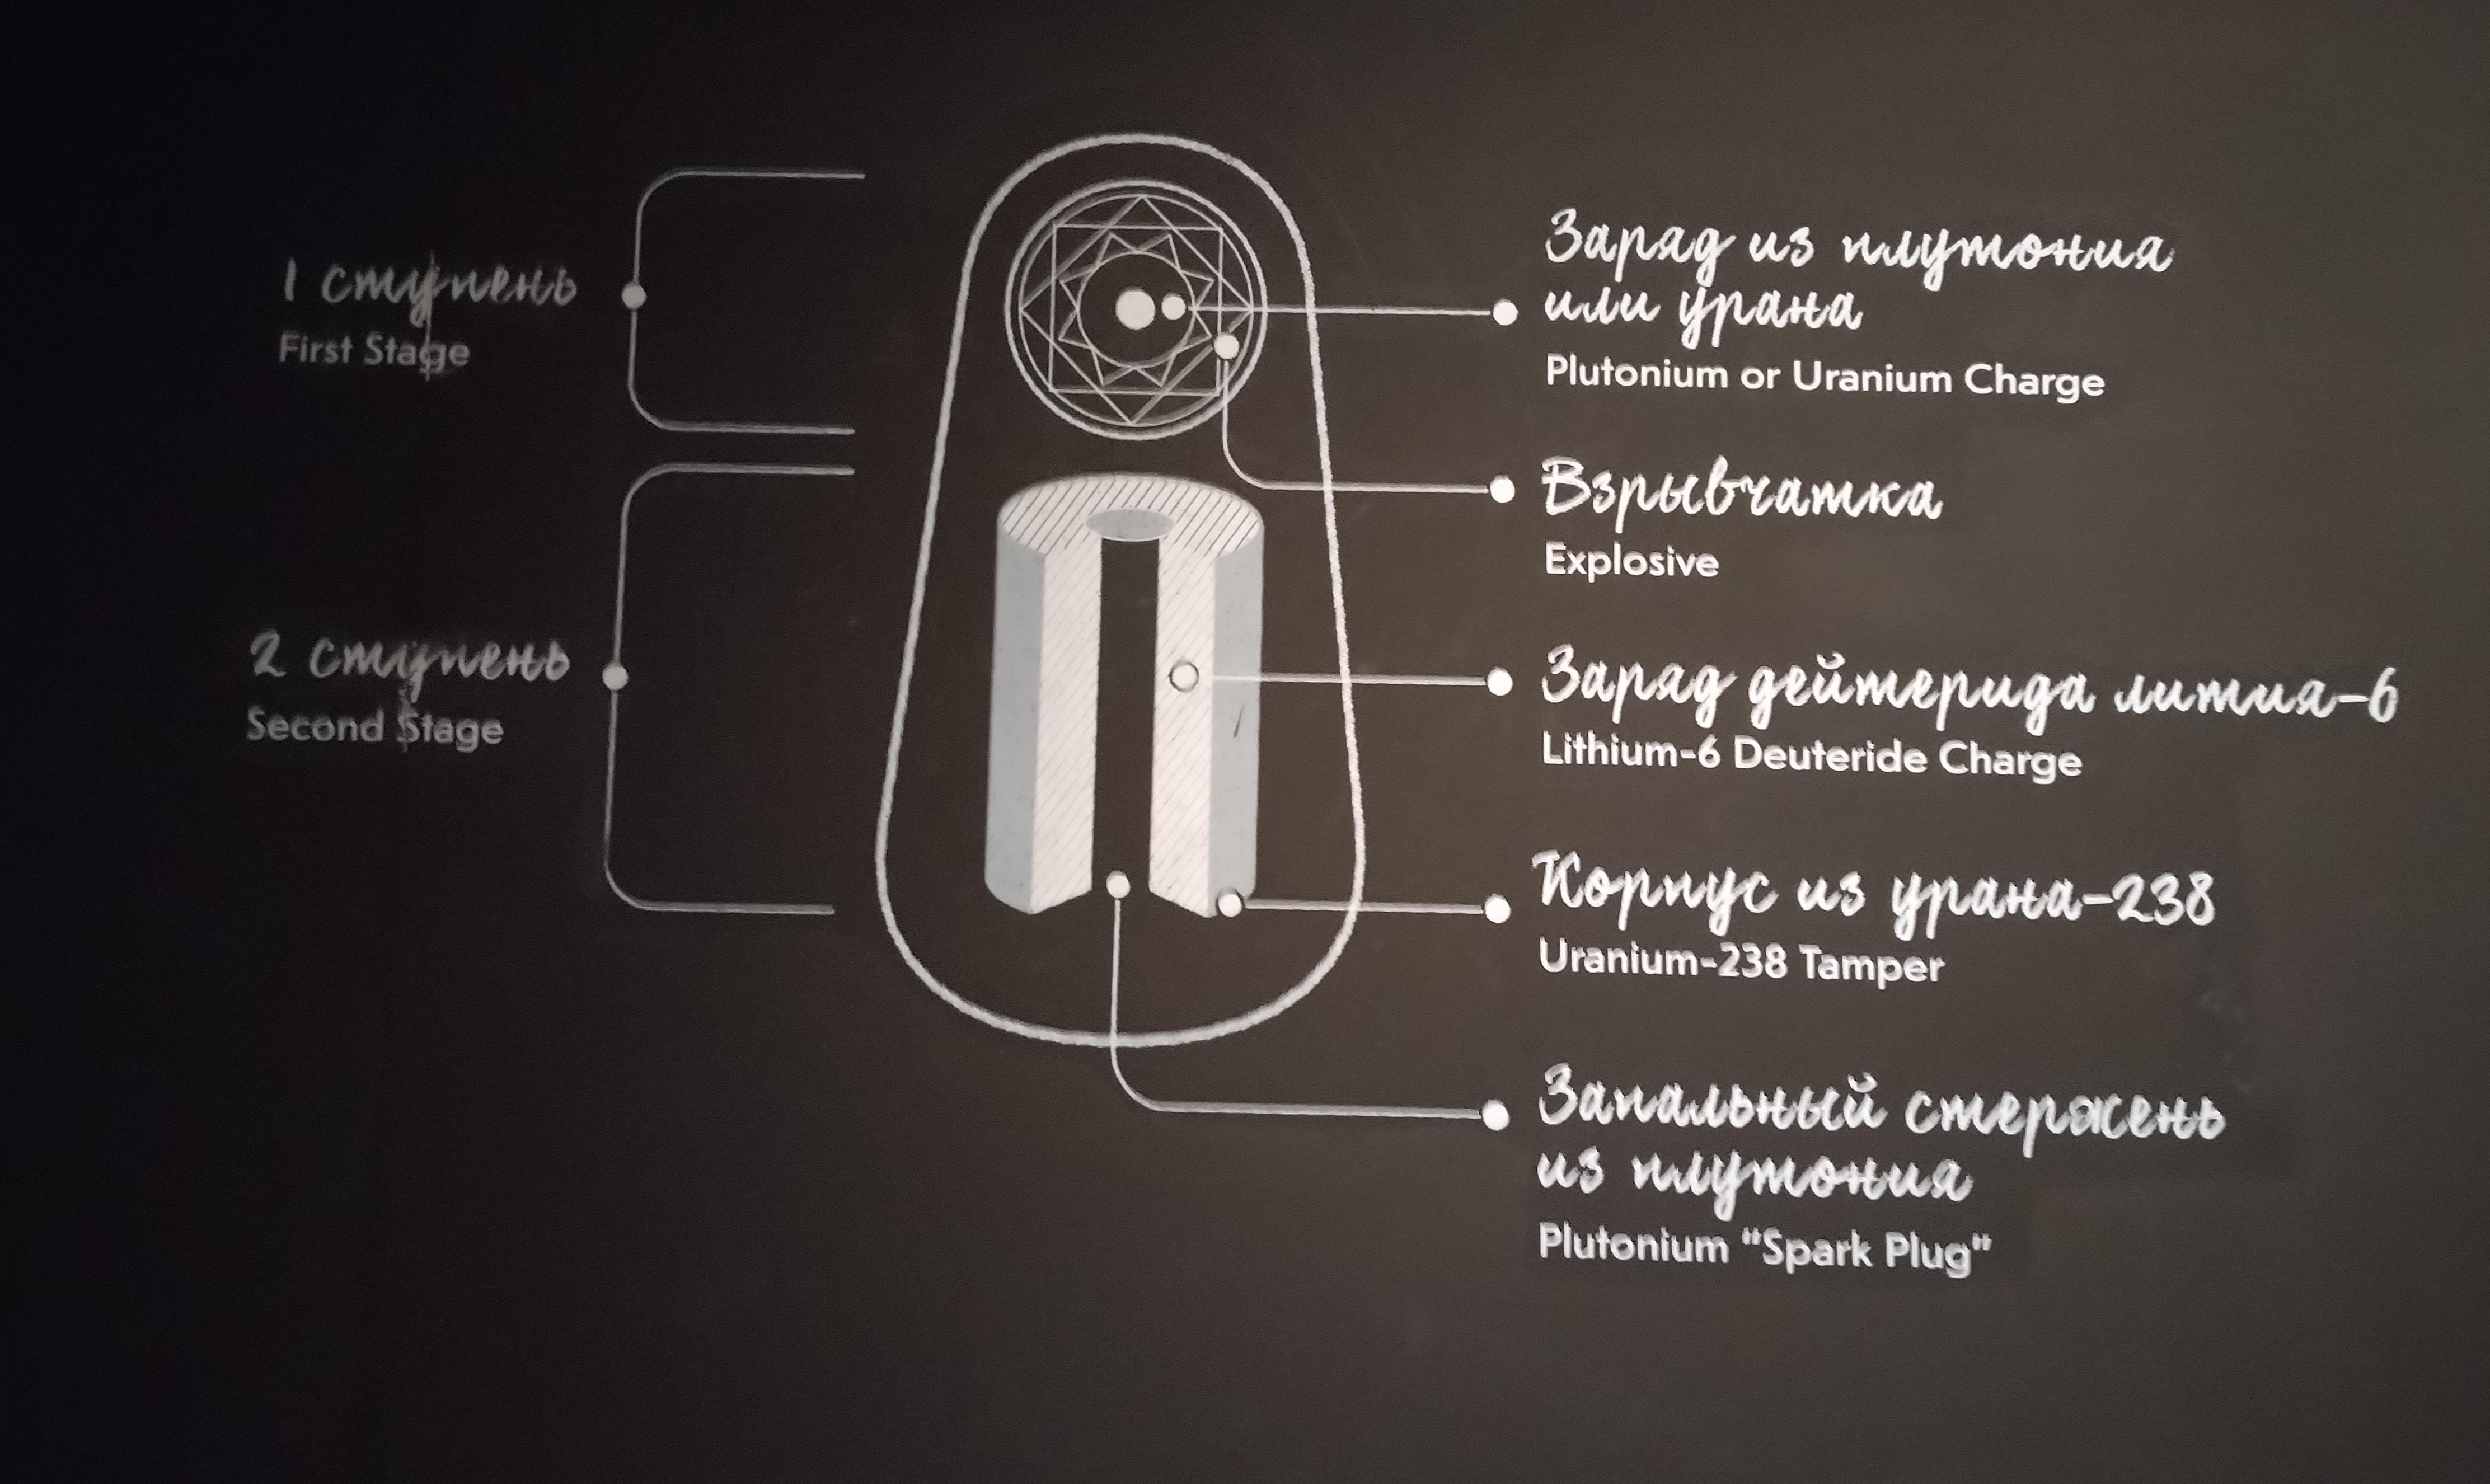 1 ступень
First Stage
2 ступень
Second Stage
Заряд из плутония
или урана
Plutonium or Uranium Charge
Взрывчатка
Explosive
Заряд дейтерида лития-6
Lithium-6 Deuteride Charge
Корпус из урана-238
Uranium-238 Tamper
Запальный стержень
из плутония
Plutonium "Spark Plug"